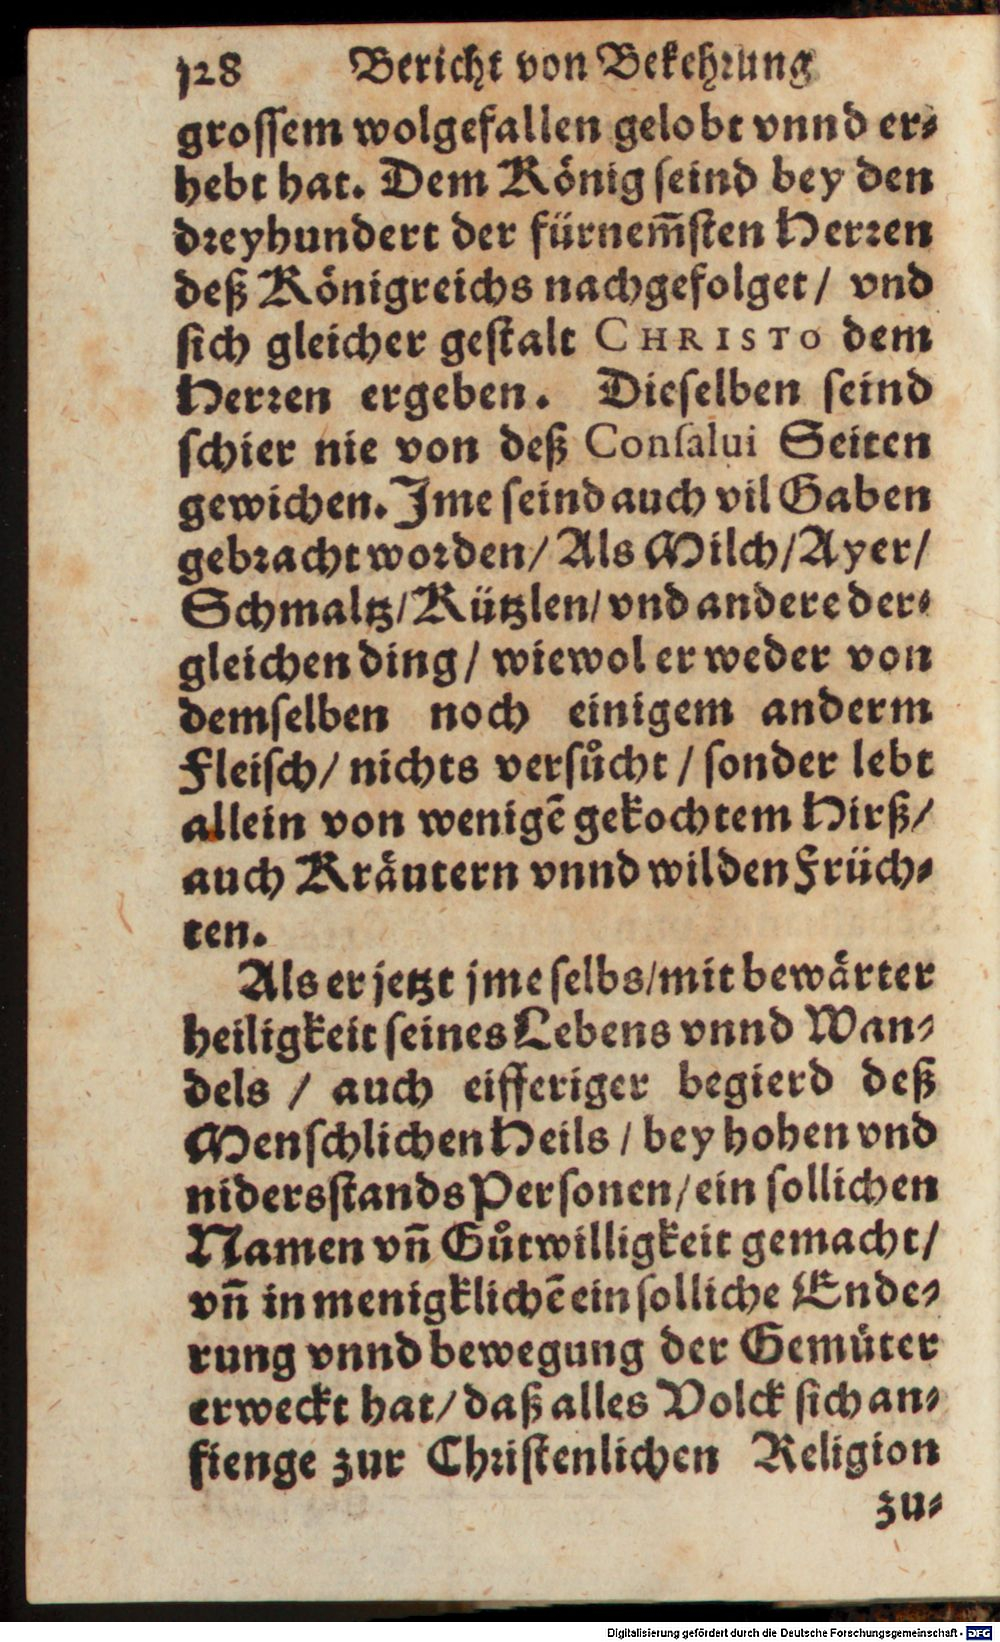 128 Bericht von Bekehrung
grossem wolgefallen gelobt vnnd er-
hebt hat. Dem König seind bey den
dreyhundert der fürnem̃sten Herren
deß Königreichs nachgefolget / vnd
sich gleicher gestalt CHRISTO dem
Herren ergeben. Dieselben seind
schier nie von deß Consalui Seiten
gewichen. Jme seind auch vil Gaben
gebracht worden / Als Milch / Ayer /
Schmaltz / Kützlen / vnd andere der-
gleichen ding / wiewol er weder von
demselben noch einigem anderm
Fleisch / nichts versůcht / sonder lebt
allein von wenigẽ gekochtem Hirß /
auch Kräutern vnnd wilden Früch-
ten.
Als er jetzt jme selbs / mit bewärter
heiligkeit seines Lebens vnnd Wan-
dels / auch eifferiger begierd deß
Menschlichen Heils / bey hohen vnd
nidersstands Personen / ein sollichen
Namen vñ Gůtwilligkeit gemacht /
vñ in menigklichẽ ein solliche Ende-
rung vnnd bewegung der Gemůter
erweckt hat / daß alles Volck sich an-
fienge zur Christenlichen Religion
zu-
Digitalisierung gefördert durch die Deutsche Forschungsgemeinschaft - DFG